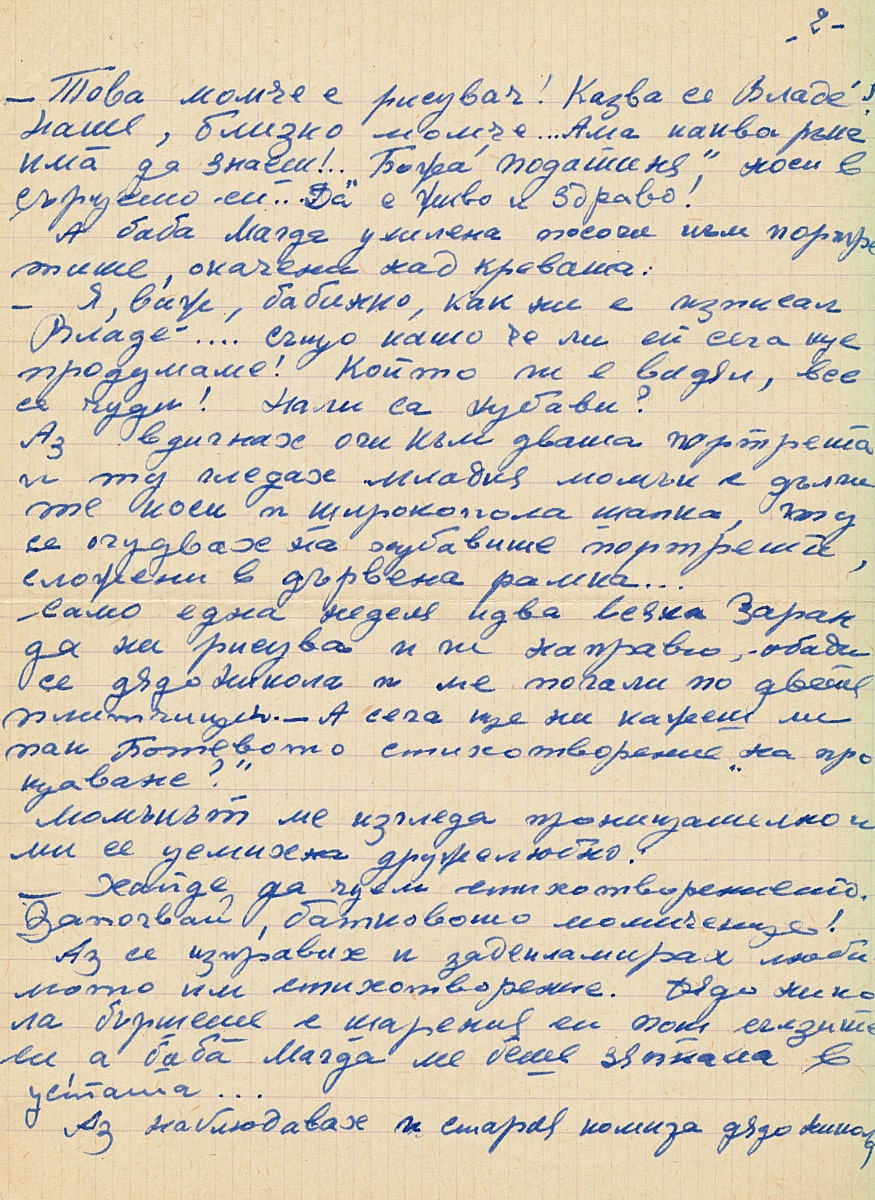 - 2 -
– Това момче е рисувач! Казва се Владе!
наше, близко момче... Ама каква ръка
има да знаеш!.. Божа "податкня", носи в
сърцето си... Да е живо и здраво!
А баба Магда умилена посочи към портре
тите, окачени над кревата:
– Я, виж, бабино, как ни е изписал
Владе .... също като че ли ей сега ще
продумаме! Който ги е видял, все
се чуди! Нали са хубави?
Аз вдигнах очи към двата портрета
и ту гледах младия момък с дълги
те коси и широкопола шапка, ту
се очудвах на хубавите портрети,
сложени в дървена рамка..
– само една неделя идва всяка заран
да ни рисува и ги направи, – обади
се дядо Никола и ме погали по двете
плитчици. – А сега ще ни кажеш ли
пак Ботевото стихотворение "на про
щаване?"
Момъкът ме изгледа проницателно и
ми се усмихна дружелюбно:
– Хайде да чуем стихотворението.
Започвай, батковото момиченце!
Аз се изправих и задекламирах люби
мото им стихотворение. Дядо Нико
ла бършеше с шарения си пош сълзите
си, а баба Магда ме беше зяпнала в
устата ...
Аз наблюдавах и стария комита дядо Никола